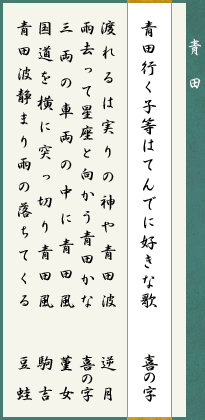 青田
青田行く子等はてんでに好きな歌　喜の字
渡れるは実りの神や青田波　逆月
雨去って星座と向かう青田かな　喜の字
三両の車両の中に青田風　菫女
国道を横に突っ切り青田風　駒吉
青田波静まり雨の落ちてくる　豆蛙